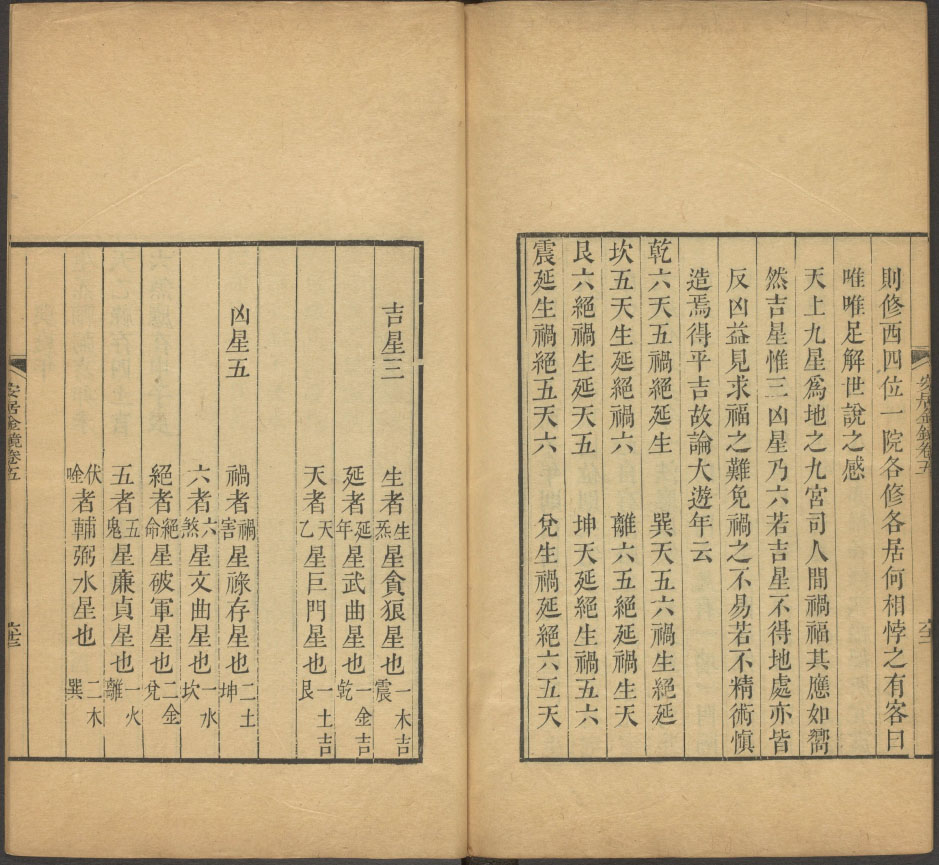 安居金鏡卷五
則修西四位一院各修各居何相悖之有客曰
唯唯足解世說之感
天上九星爲地之九宮司人間禍福其應如嚮
然吉星惟三凶星乃六若吉星不得地處亦皆
反凶益見求福之難免禍之不易若不精術慎
造焉得平吉故論大遊年云
乾六天五禍絕延生　巽天五六禍生絕延
坎五天生延絕禍六　離六五絕延禍生天
艮六絕禍生延天五　坤天延絕生禍五六
震延生禍絕五天六　兌生禍延絕六五天
吉星三
生者生炁星貪狼星也一木吉震
延者延年星武曲星也一金吉乾
天者天乙星巨門星也一土吉艮
凶星五
禍者禍害星祿存星也二土坤
六者六煞星文曲星也一水坎
絕者絕命星破軍星也二金兌
五者五鬼星廉貞星也一火離
伏唫者輔弼水星也二木巽
安居金鏡卷五